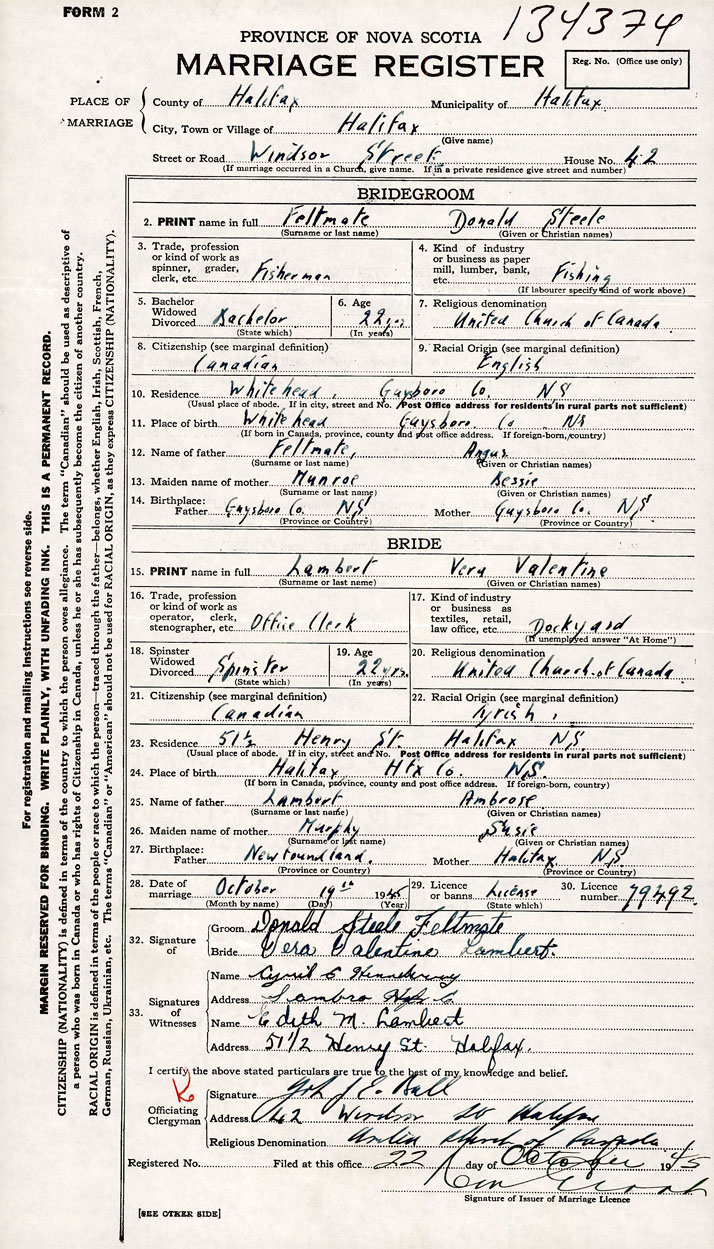 FORM 2
134374
PROVINCE OF NOVA SCOTIA
MARRIAGE REGISTER
Reg. No. (Office use only)
PLACE OF MARRIAGE
County of Halifax Municipality of Halifax
City, Town or Village of Halifax
(Give name)
Street or Road Windsor Street House No. 42
(If marriage occurred in a Church, give name. If in a private residence give street and number)
BRIDEGROOM
2. PRINT name in full Feltmate Donald Steele
(Surname or last name) (Given or Christian names)
3. Trade, profession or kind of work as spinner, grader, clerk, etc. Fisherman
4. Kind of industry or business as paper mill, lumber, bank, etc. Fishing
(If labourer specify kind of work above)
5. Bachelor Widowed Divorced Bachelor
(State which)
6. Age 22 yrs
(In years)
7. Religious denomination
United Church of Canada
8. Citizenship (see marginal definition)
Canadian
9. Racial Origin (see marginal definition)
English
10. Residence Whitehead, Guysboro Co. NS
(Usual place of abode. If in city, street and No. Post Office address for residents in rural parts not sufficient)
11. Place of birth Whitehead Guysboro. Co NS
(If born in Canada, province, county and post office address. If foreign-born, country)
12. Name of father Feltmate, Angus
(Surname or last name) (Given or Christian names)
13. Maiden name of mother Munroe Bessie
(Surname or last name) (Given or Christian names)
14. Birthplace: Father Guysboro Co. NS Mother Guysboro Co. NS
(Province or Country) (Province or Country)
BRIDE
15. PRINT name in full Lambert Vera Valentine
(Surname or last name) (Given or Christian names)
16. Trade, profession or kind of work as operator, clerk, stenographer, etc. Office Clerk
17. Kind of industry or business as textiles, retail, law office, etc. Dockyard
(If unemployed answer "At Home")
18. Spinster Widowed Divorced Spinster
(State which)
19. Age 22 yrs.
(In years)
20. Religious denomination
United Church of Canada
21. Citizenship (see marginal definition)
Canadian
22. Racial Origin (see marginal definition)
Irish
23. Residence 51½ Henry St. Halifax NS.
(Usual place of abode. If in city, street and No. Post Office address for residents in rural parts not sufficient)
24. Place of birth Halifax Hfx Co. N.S.
(If born in Canada, province, county and post office address. If foreign-born, country)
25. Name of father Lambert Ambrose
(Surname or last name) (Given or Christian names)
26. Maiden name of mother Murphy Susie
(Surname or last name) (Given or Christian names)
27. Birthplace: Father Newfoundland. Mother Halifax NS.
(Province or Country) (Province or Country)
28. Date of marriage October 19th 1945
(Month by name) (Day) (Year)
29. Licence or banns License
(State which)
30. Licence number 79492
32. Signature of
Groom Donald Steele Feltmate
Bride Vera Valentine Lambert.
33. Signatures of Witnesses
Name Cyril
Address Sambro
Name Edith M. Lambert
Address 51 1/2 Henry St. Halifax.
I certify the above stated particulars are true to the best of my knowledge and belief.
Officiating Clergyman
Signature J. E. Bell
Address 42 Windsor St Halifax
Religious Denomination United Church of Canada
Registered No. Filed at this office 22 day of October 1945
Signature of Issuer of Marriage Licence
[SEE OTHER SIDE]
For registration and mailing instructions see reverse side.
MARGIN RESERVED FOR BINDING. WRITE PLAINLY, WITH UNFADING INK. THIS IS A PERMANENT RECORD.
CITIZENSHIP (NATIONALITY) is defined in terms of the country to which the person owes allegiance. The term "Canadian" should be used as descriptive of
a person who was born in Canada or who has rights of Citizenship in Canada, unless he or she has subsequently become the citizen of another country.
RACIAL ORIGIN is defined in terms of the people or race to which the person—traced through the father—belongs, whether English, Irish, Scottish, French,
German, Russian, Ukrainian, etc. The terms "Canadian" or "American" should not be used for RACIAL ORIGIN, as they express CITIZENSHIP (NATIONALITY).